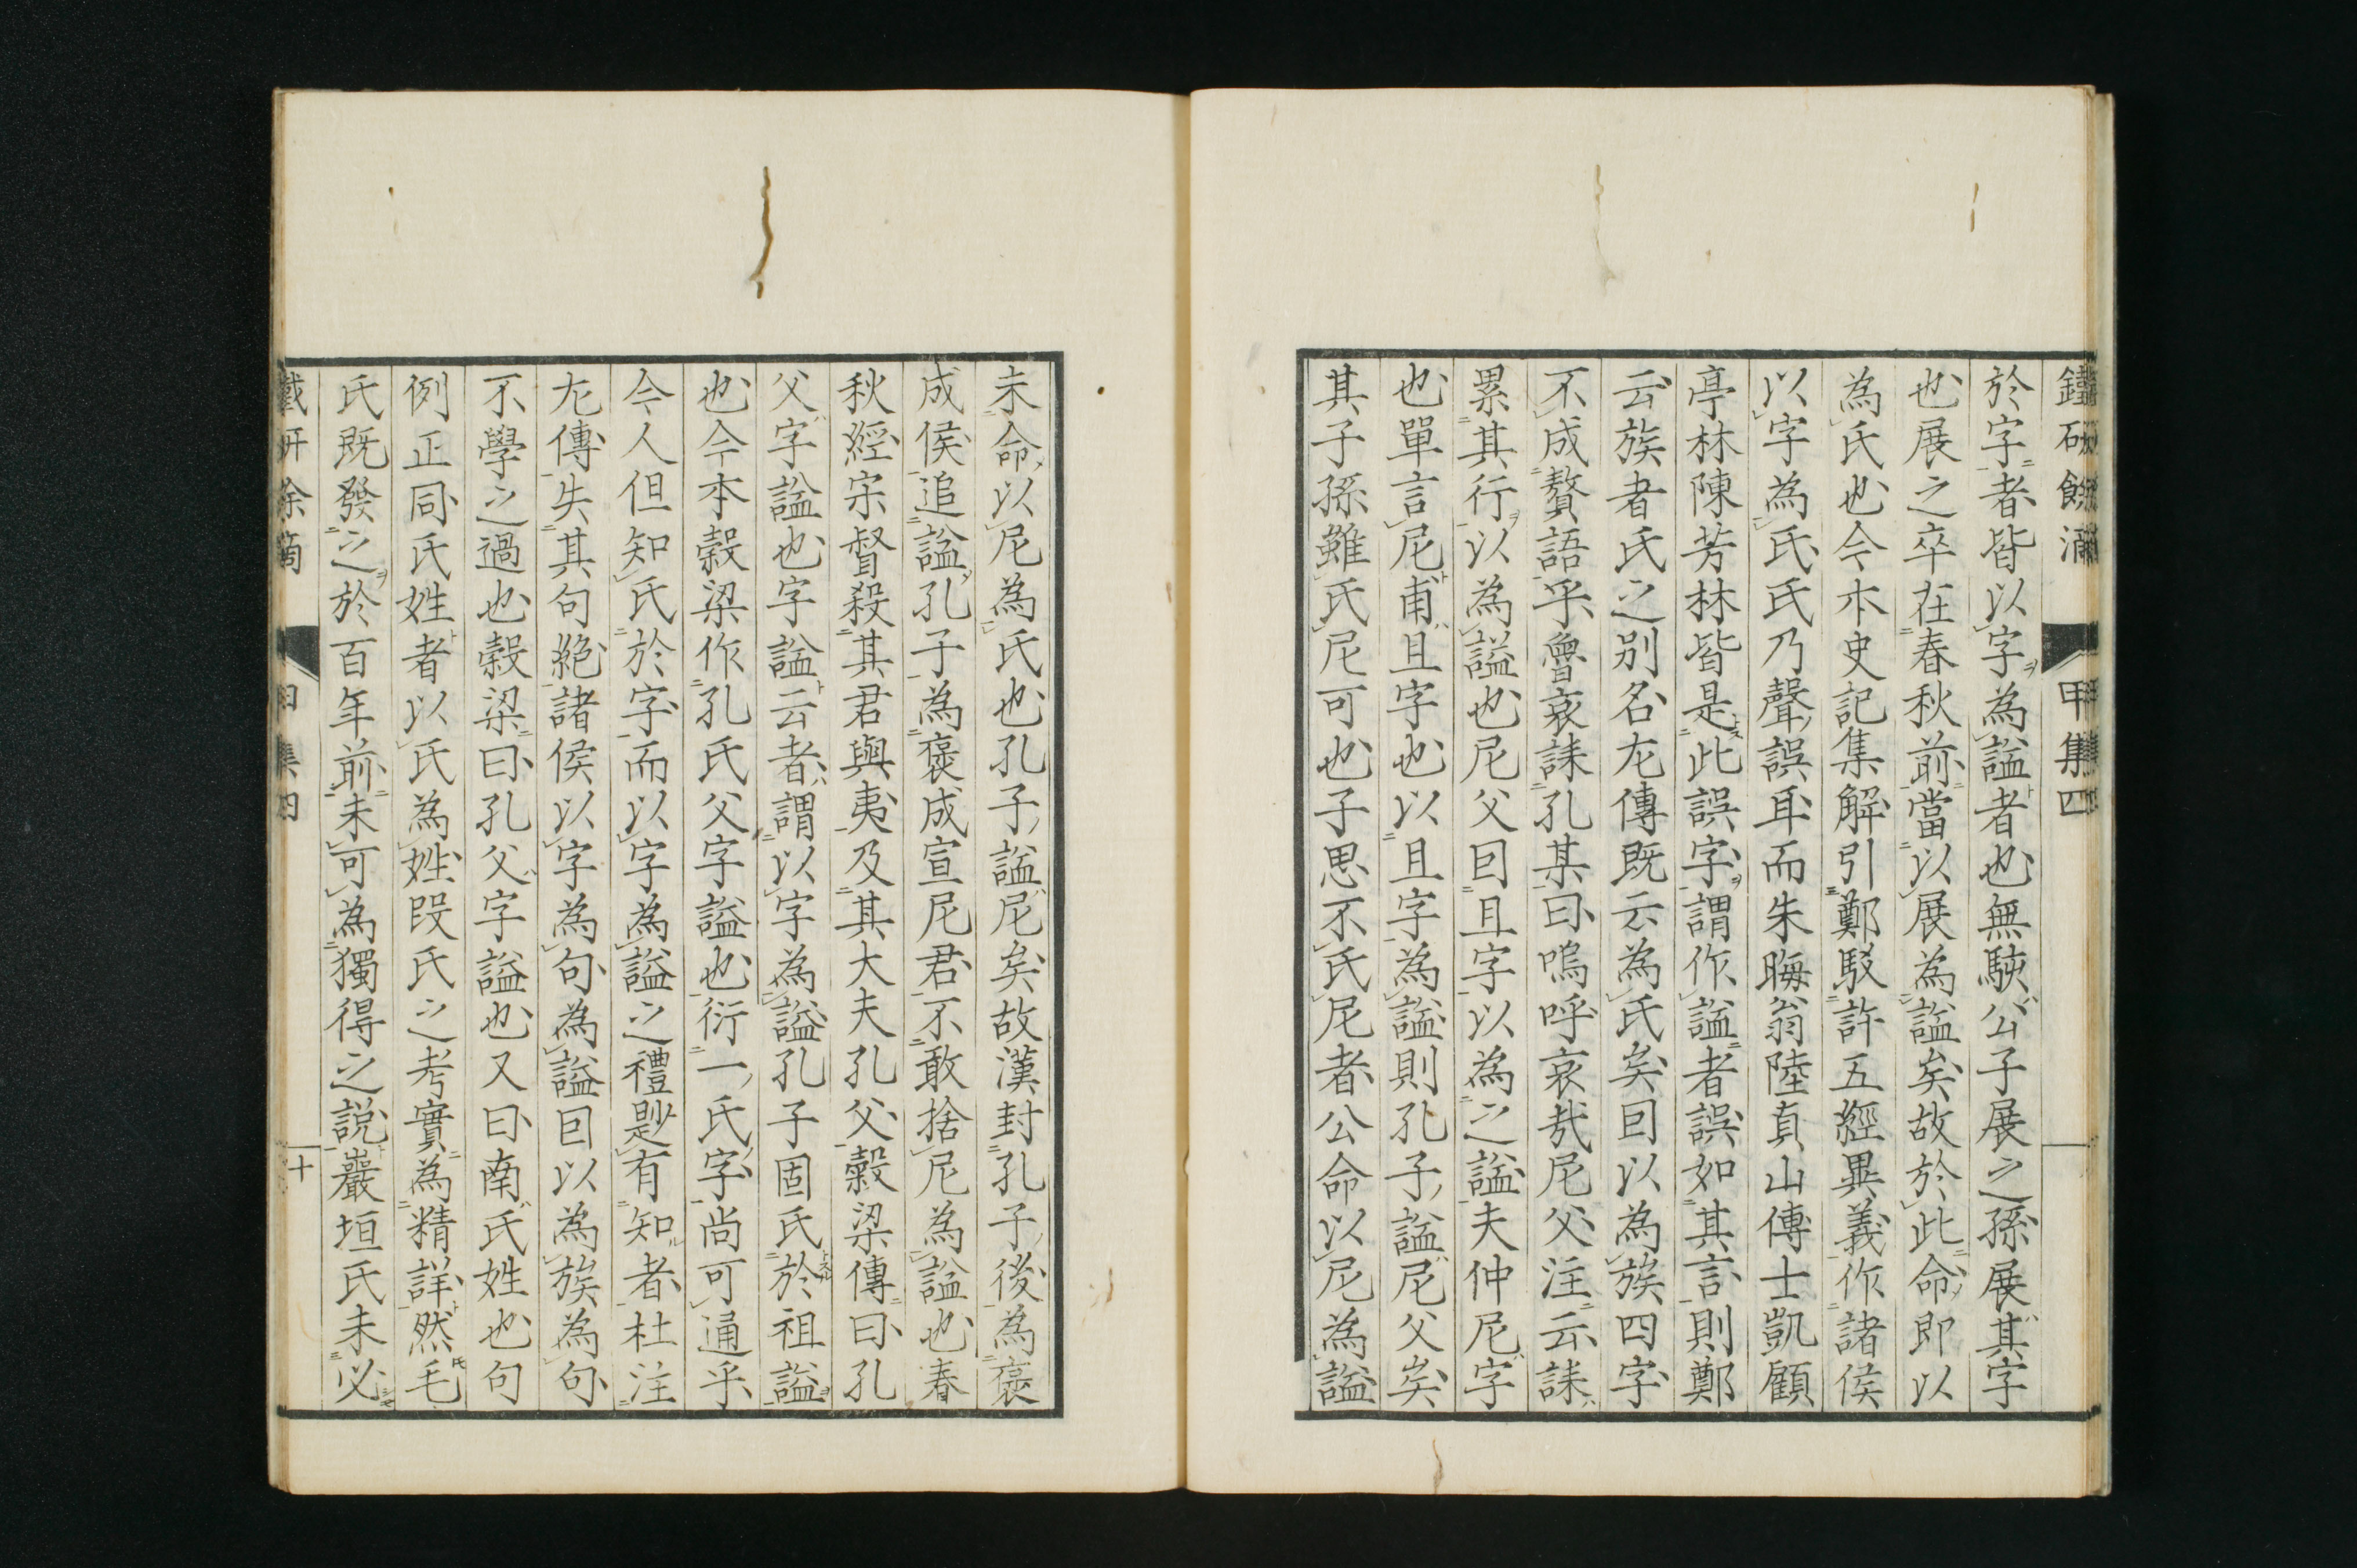 鐵研餘滴 甲集四
於字者皆以字為謚者也無駭公子展之孫展其字
也展之卒在春秋前當以展為謚矣故於此命即以
為氏也今本史記集解引鄭駁許五經異義作諸侯
以字為氏氏乃聲誤耳而朱晦翁陸貞山傅士凱顧
亭林陳芳林皆是此誤字謂作謚者誤如其言則鄭
云族者氏之别名左傳既云為氏矣囙以為族四字
不成贅語乎魯哀誄孔某曰嗚呼哀哉尼父注云誄
累其行以為謚也尼父囙且字以為之謚夫仲尼字
也單言尼甫且字也以且字為謚則孔子謚尼父矣
其子孫雖氏尼可也子思不氏尼者公命以尼為謚
未命以尼為氏也孔子謚尼矣故漢封孔子後為褒
成侯追謚孔子為褒成宣尼君不敢捨尼為謚也春
秋經宋督殺其君與夷及其大夫孔父穀梁傳曰孔
父字謚也字謚云者謂以字為謚孔子固氏於祖謚
也今本穀梁作孔氏父字謚也衍一氏字尚可通乎
今人但知氏於字而以字為謚之禮尠有知者杜注
左傳失其句絶諸侯以字為句為謚囙以為族為句
不學之過也穀梁曰孔父字謚也又曰南氏姓也句
例正同氏姓者以氏為姓段氏之考實為精詳然毛
氏既發之於百年前未可為獨得之説巖垣氏未必
鐵研餘滴 甲集四 十